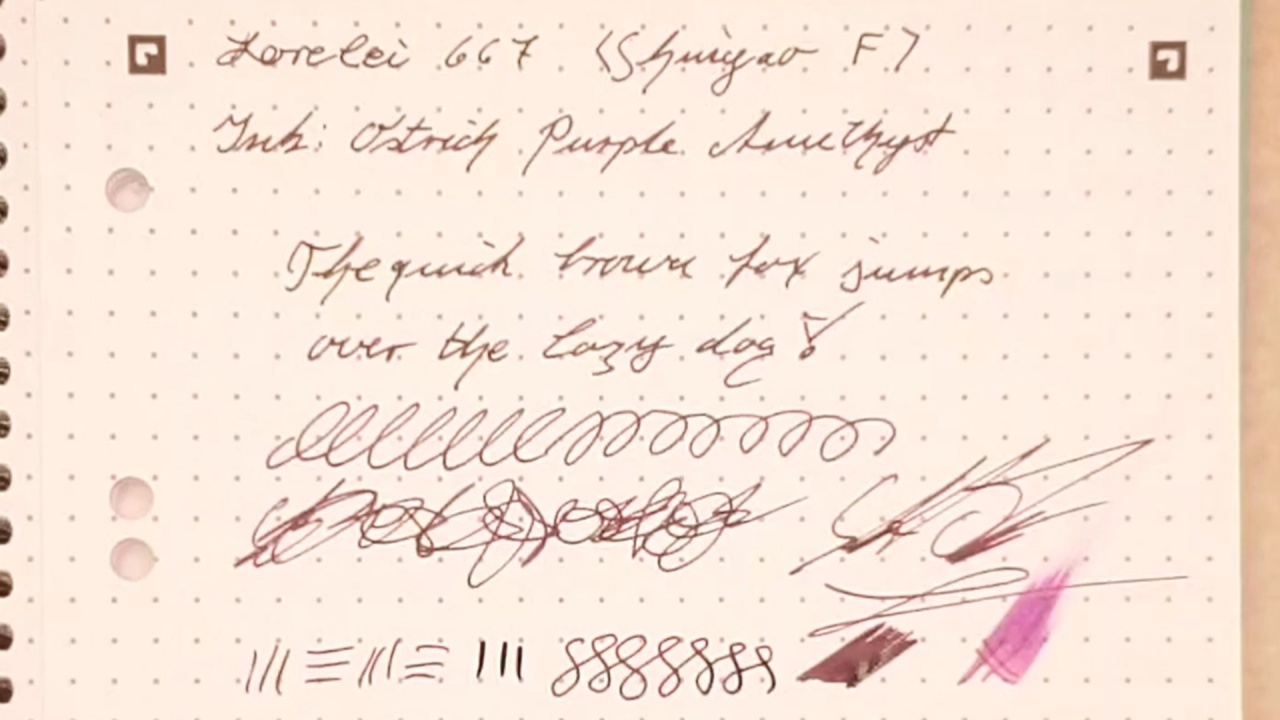 Lorelei 667 (Shuigao F)
Ink: Ostrich Purple Amethyst
The quick brown fox jumps
over the lazy dog!